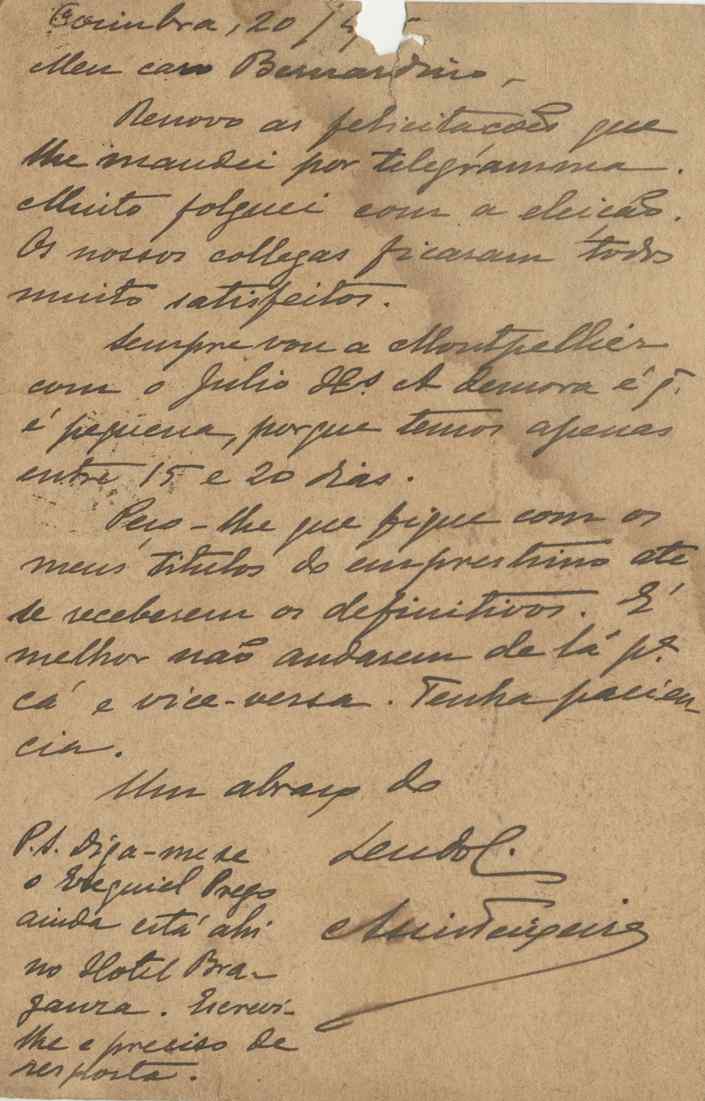 Coimbra, 20/4
Meu caro Bernardino,
Renovo as felicitações que
lhe mandei por telegramma.
Muito folguei com a eleição.
Os nossos collegas ficaram todos
muito satisfeitos.
Sempre vou a Montpellier
com o Julio A demora é q.
é pequena, porque temos apenas
entre 15 e 20 dias.
Peço-lhe que fique com os
meus titulos do emprestimo até
se receberem os definitivos. É
melhor não andarem de lá pª
cá e vice-versa. Tenha pacien-
cia.
Um abraço do
P.S. Diga-me se
o Ezequiel Prego
ainda está ahi
no Hotel Bra-
ganza. Escrevi-
lhe e preciso de
resposta.